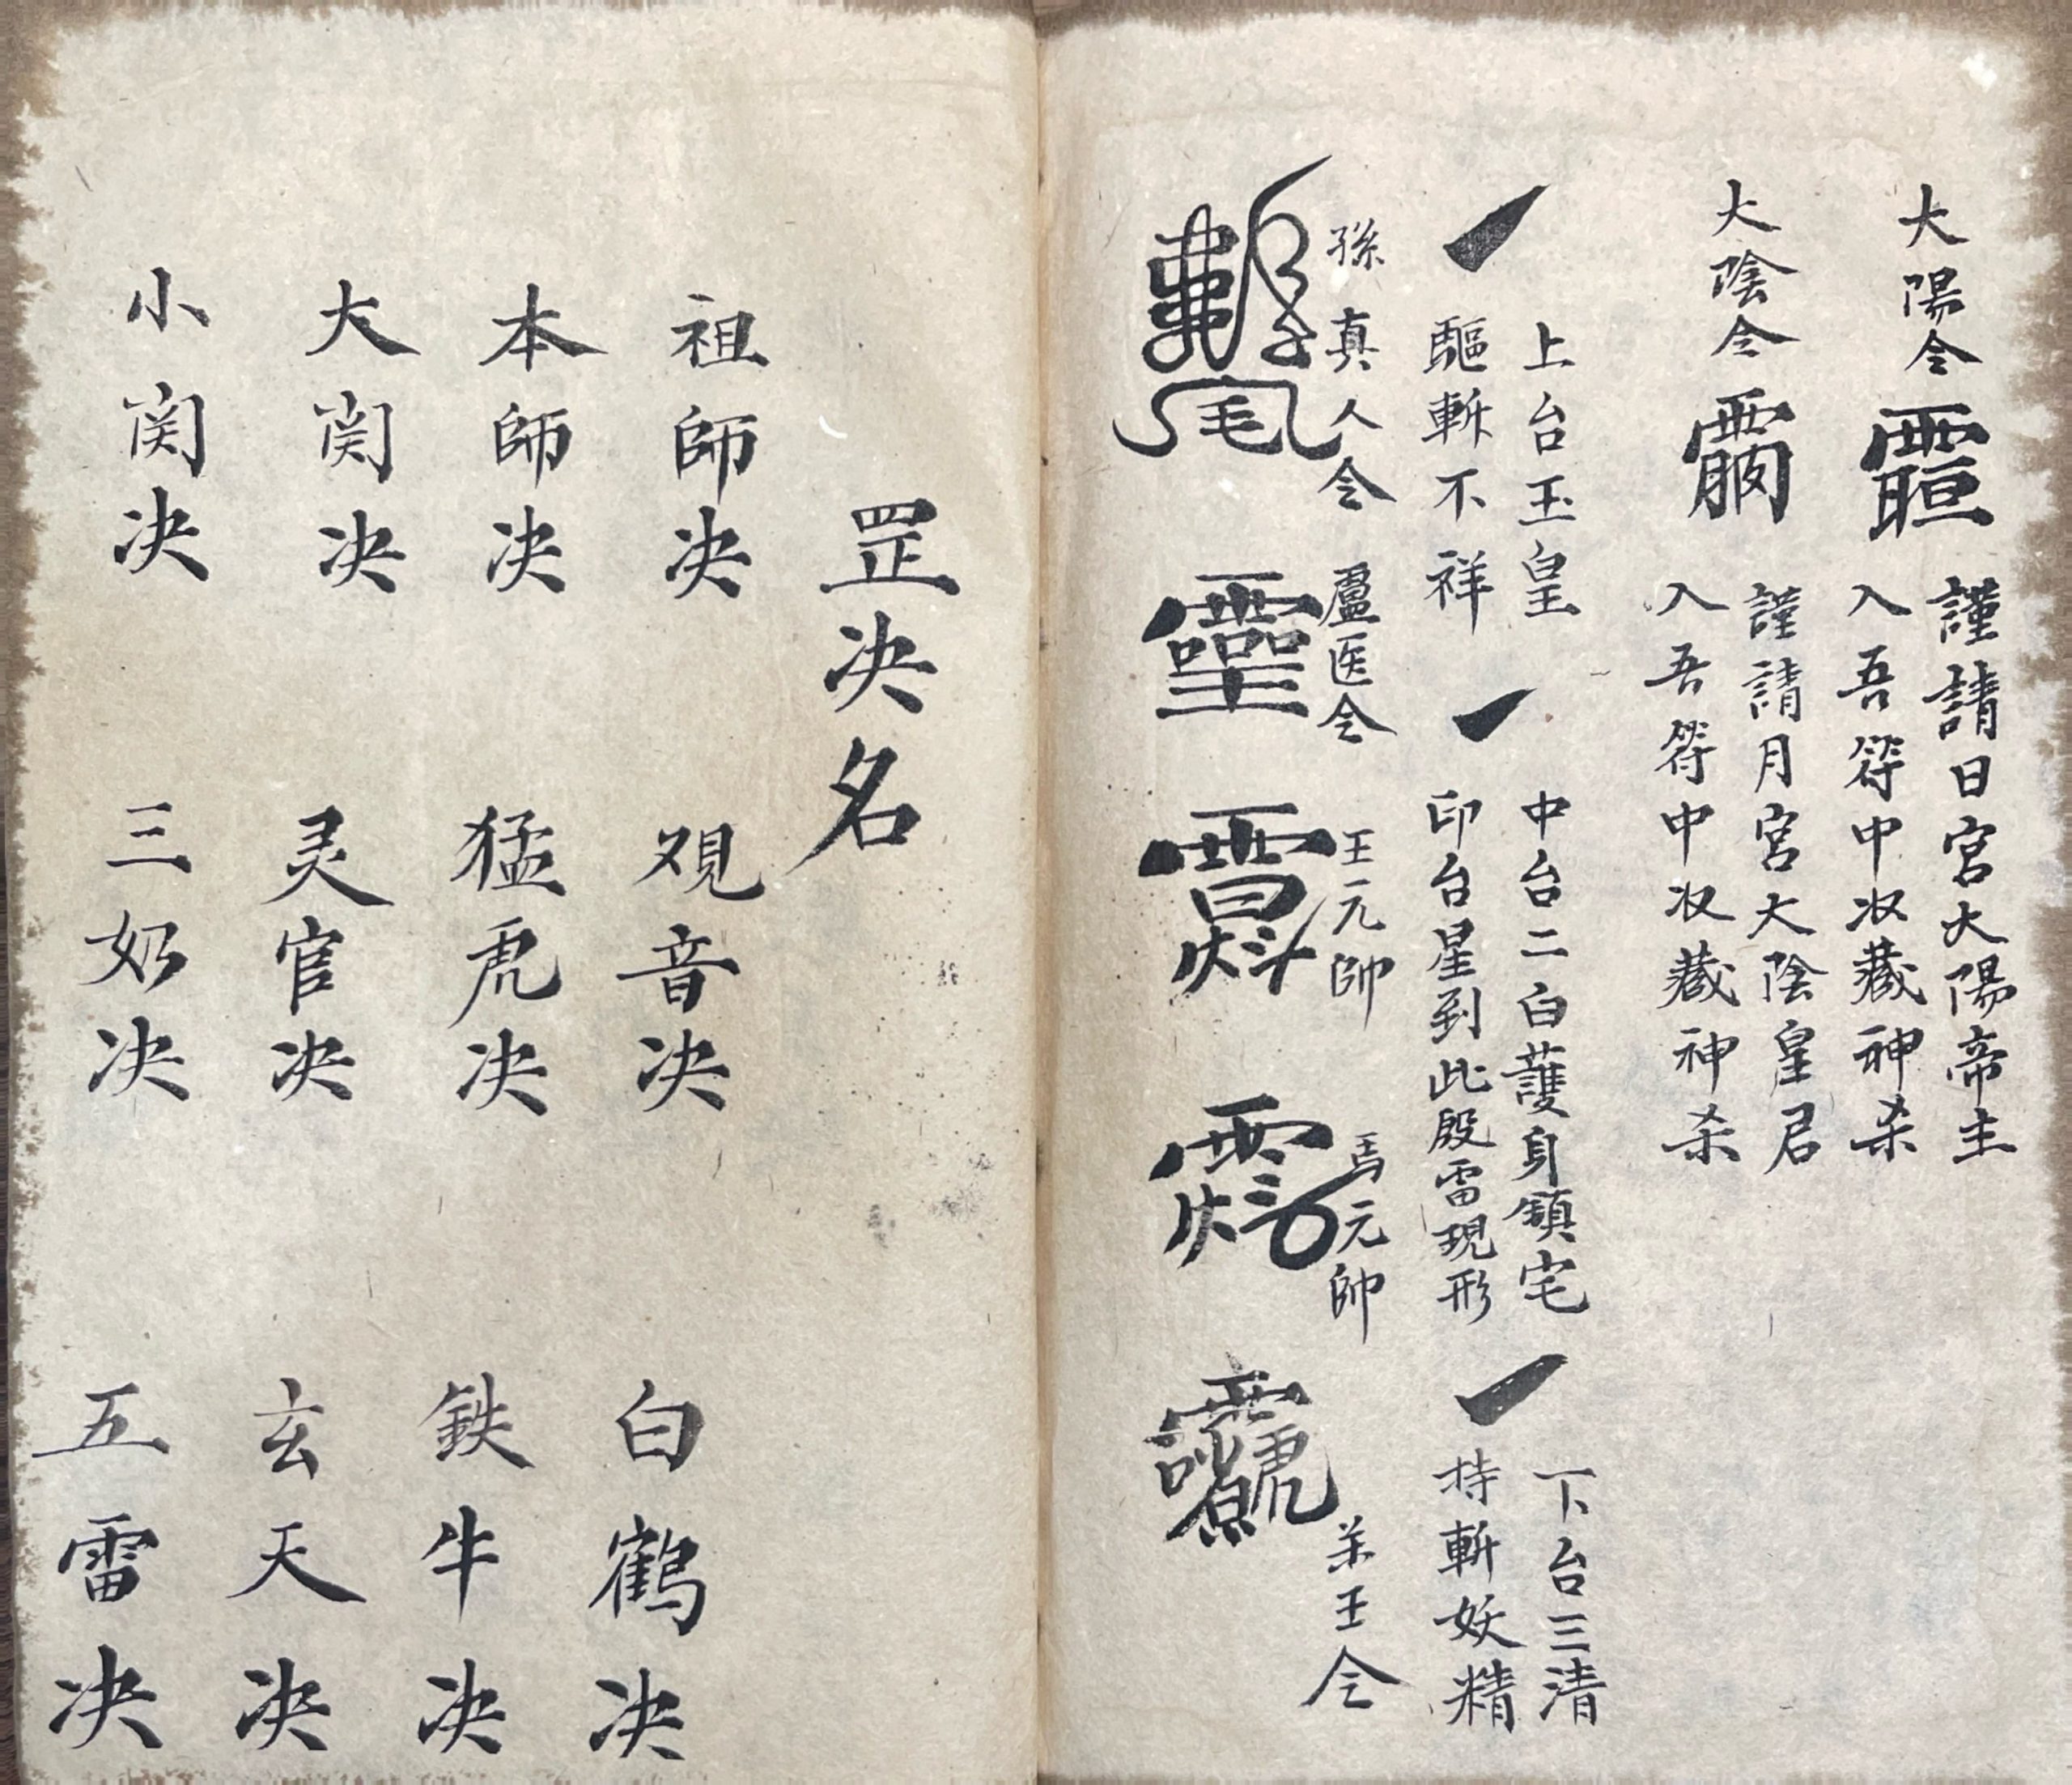 大陽令
謹請日宮大陽帝主
入吾符中收藏神杀
大陰令
謹請月宮大陰皇君
入吾符中收藏神杀
上台玉皇
驅斬不祥
中台二白護身鎮宅
印台星到此殿雷現形
下台三清
持斬妖精
孫真人令
盧医令
王元帥
馬元帥
王令
罡决名
祖師决
観音决
白鹤决
本師决
猛虎决
鉄牛决
大関决
灵官决
玄天决
小関决
三奶决
五雷决